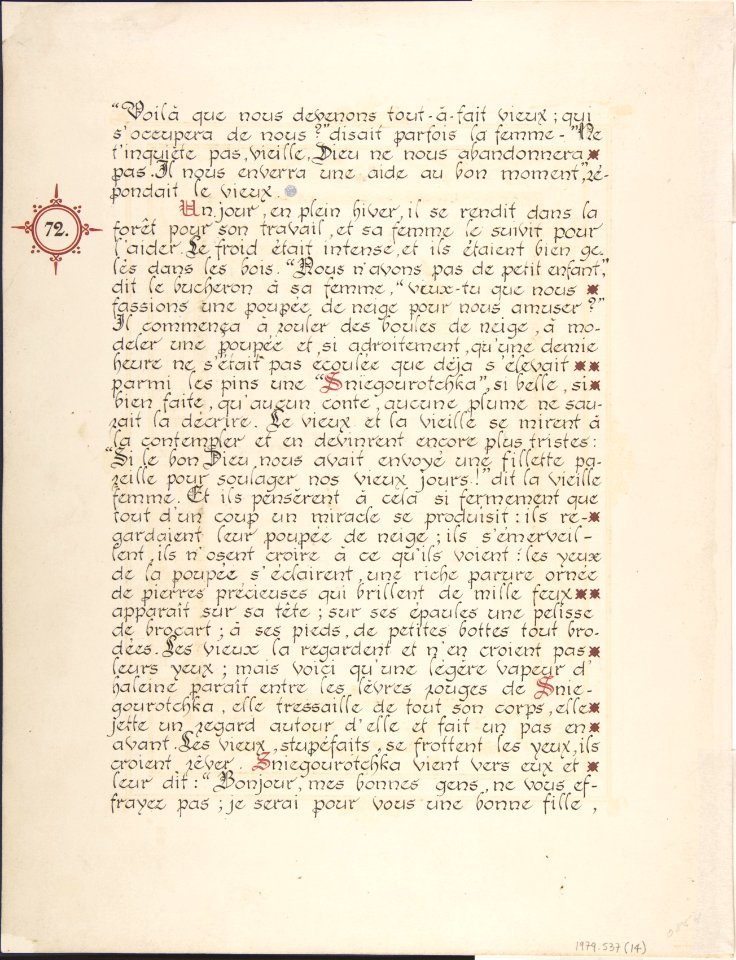 “Voilà que nous devenons tout-à-fait vieux ; qui
s’occupera de nous ?” disait parfois la femme - “Ne
t’inquiète pas, vieille, Dieu ne nous abandonnera
pas. Il nous enverra une aide au bon moment”, ré-
pondait le vieux.
72.
Un jour, en plein hiver, il se rendit dans la
forêt pour son travail, et sa femme le suivit pour
l’aider. Le froid était intense, et ils étaient bien ge-
lés dans les bois. “Nous n’avons pas de petit enfant,”
dit le bucheron à sa femme, “veux-tu que nous
fassions une poupée de neige pour nous amuser ?”
Il commença à rouler des boules de neige, à mo-
deler une poupée et, si adroitement, qu’une demie
heure ne s’était pas écoulée que déjà s’élevait
parmi les pins une “Sniegourotchka”, si belle, si
bien faite, qu’aucun conte, aucune plume ne sau-
rait la décrire. Le vieux et la vieille se mirent à
la contempler et en devinrent encore plus tristes :
“Si le bon Dieu nous avait envoyé une fillette pa-
reille pour soulager nos vieux jours !” dit la vieille
femme. Et ils pensèrent à cela si fermement que
tout d’un coup un miracle se produisit : ils re-
gardaient leur poupée de neige ; ils s’émerveil-
lent, ils n’osent croire à ce qu’ils voient : les yeux
de la poupée s’éclairent, une riche parure ornée
de pierres précieuses qui brillent de mille feux
apparaît sur sa tête ; sur ses épaules une pelisse
de brocart ; à ses pieds, de petites bottes tout bro-
dées. Les vieux la regardent et n’en croient pas
leurs yeux ; mais voici qu’une légère vapeur d’
haleine paraît entre les lèvres rouges de Snie-
gourotchka, elle tressaille de tout son corps, elle
jette un regard autour d’elle et fait un pas en
avant. Les vieux, stupéfaits, se frottent les yeux, ils
croient rêver. Sniegourotchka vient vers eux et
leur dit : “Bonjour, mes bonnes gens, ne vous ef-
frayez pas ; je serai pour vous une bonne fille,
1979.537 (14)